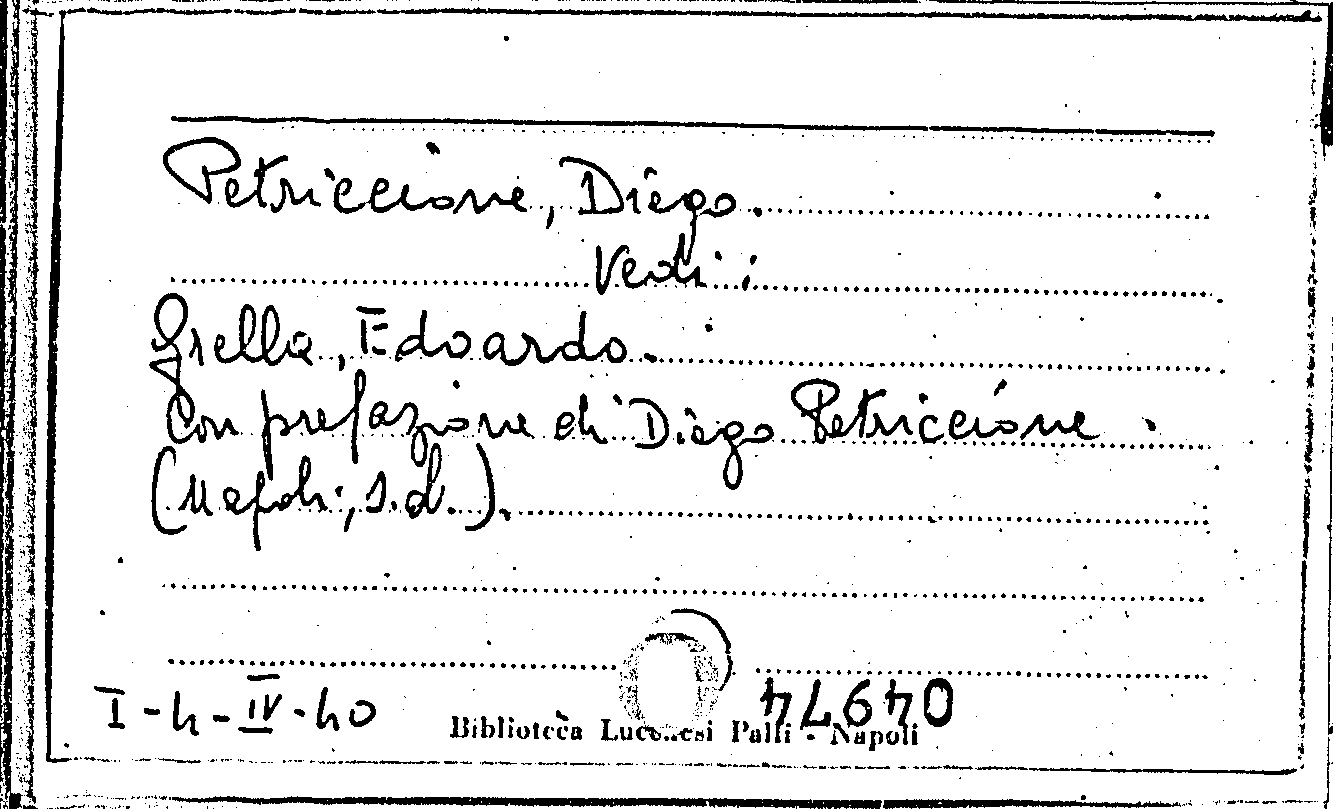 Petriccione, Diego.
Vedi:
Grella, Edoardo.
Con prefazione di Diego Petriccione.
(Napoli, s.d.).
I-4-IV-40
Biblioteca Lucchesi Palli - Napoli